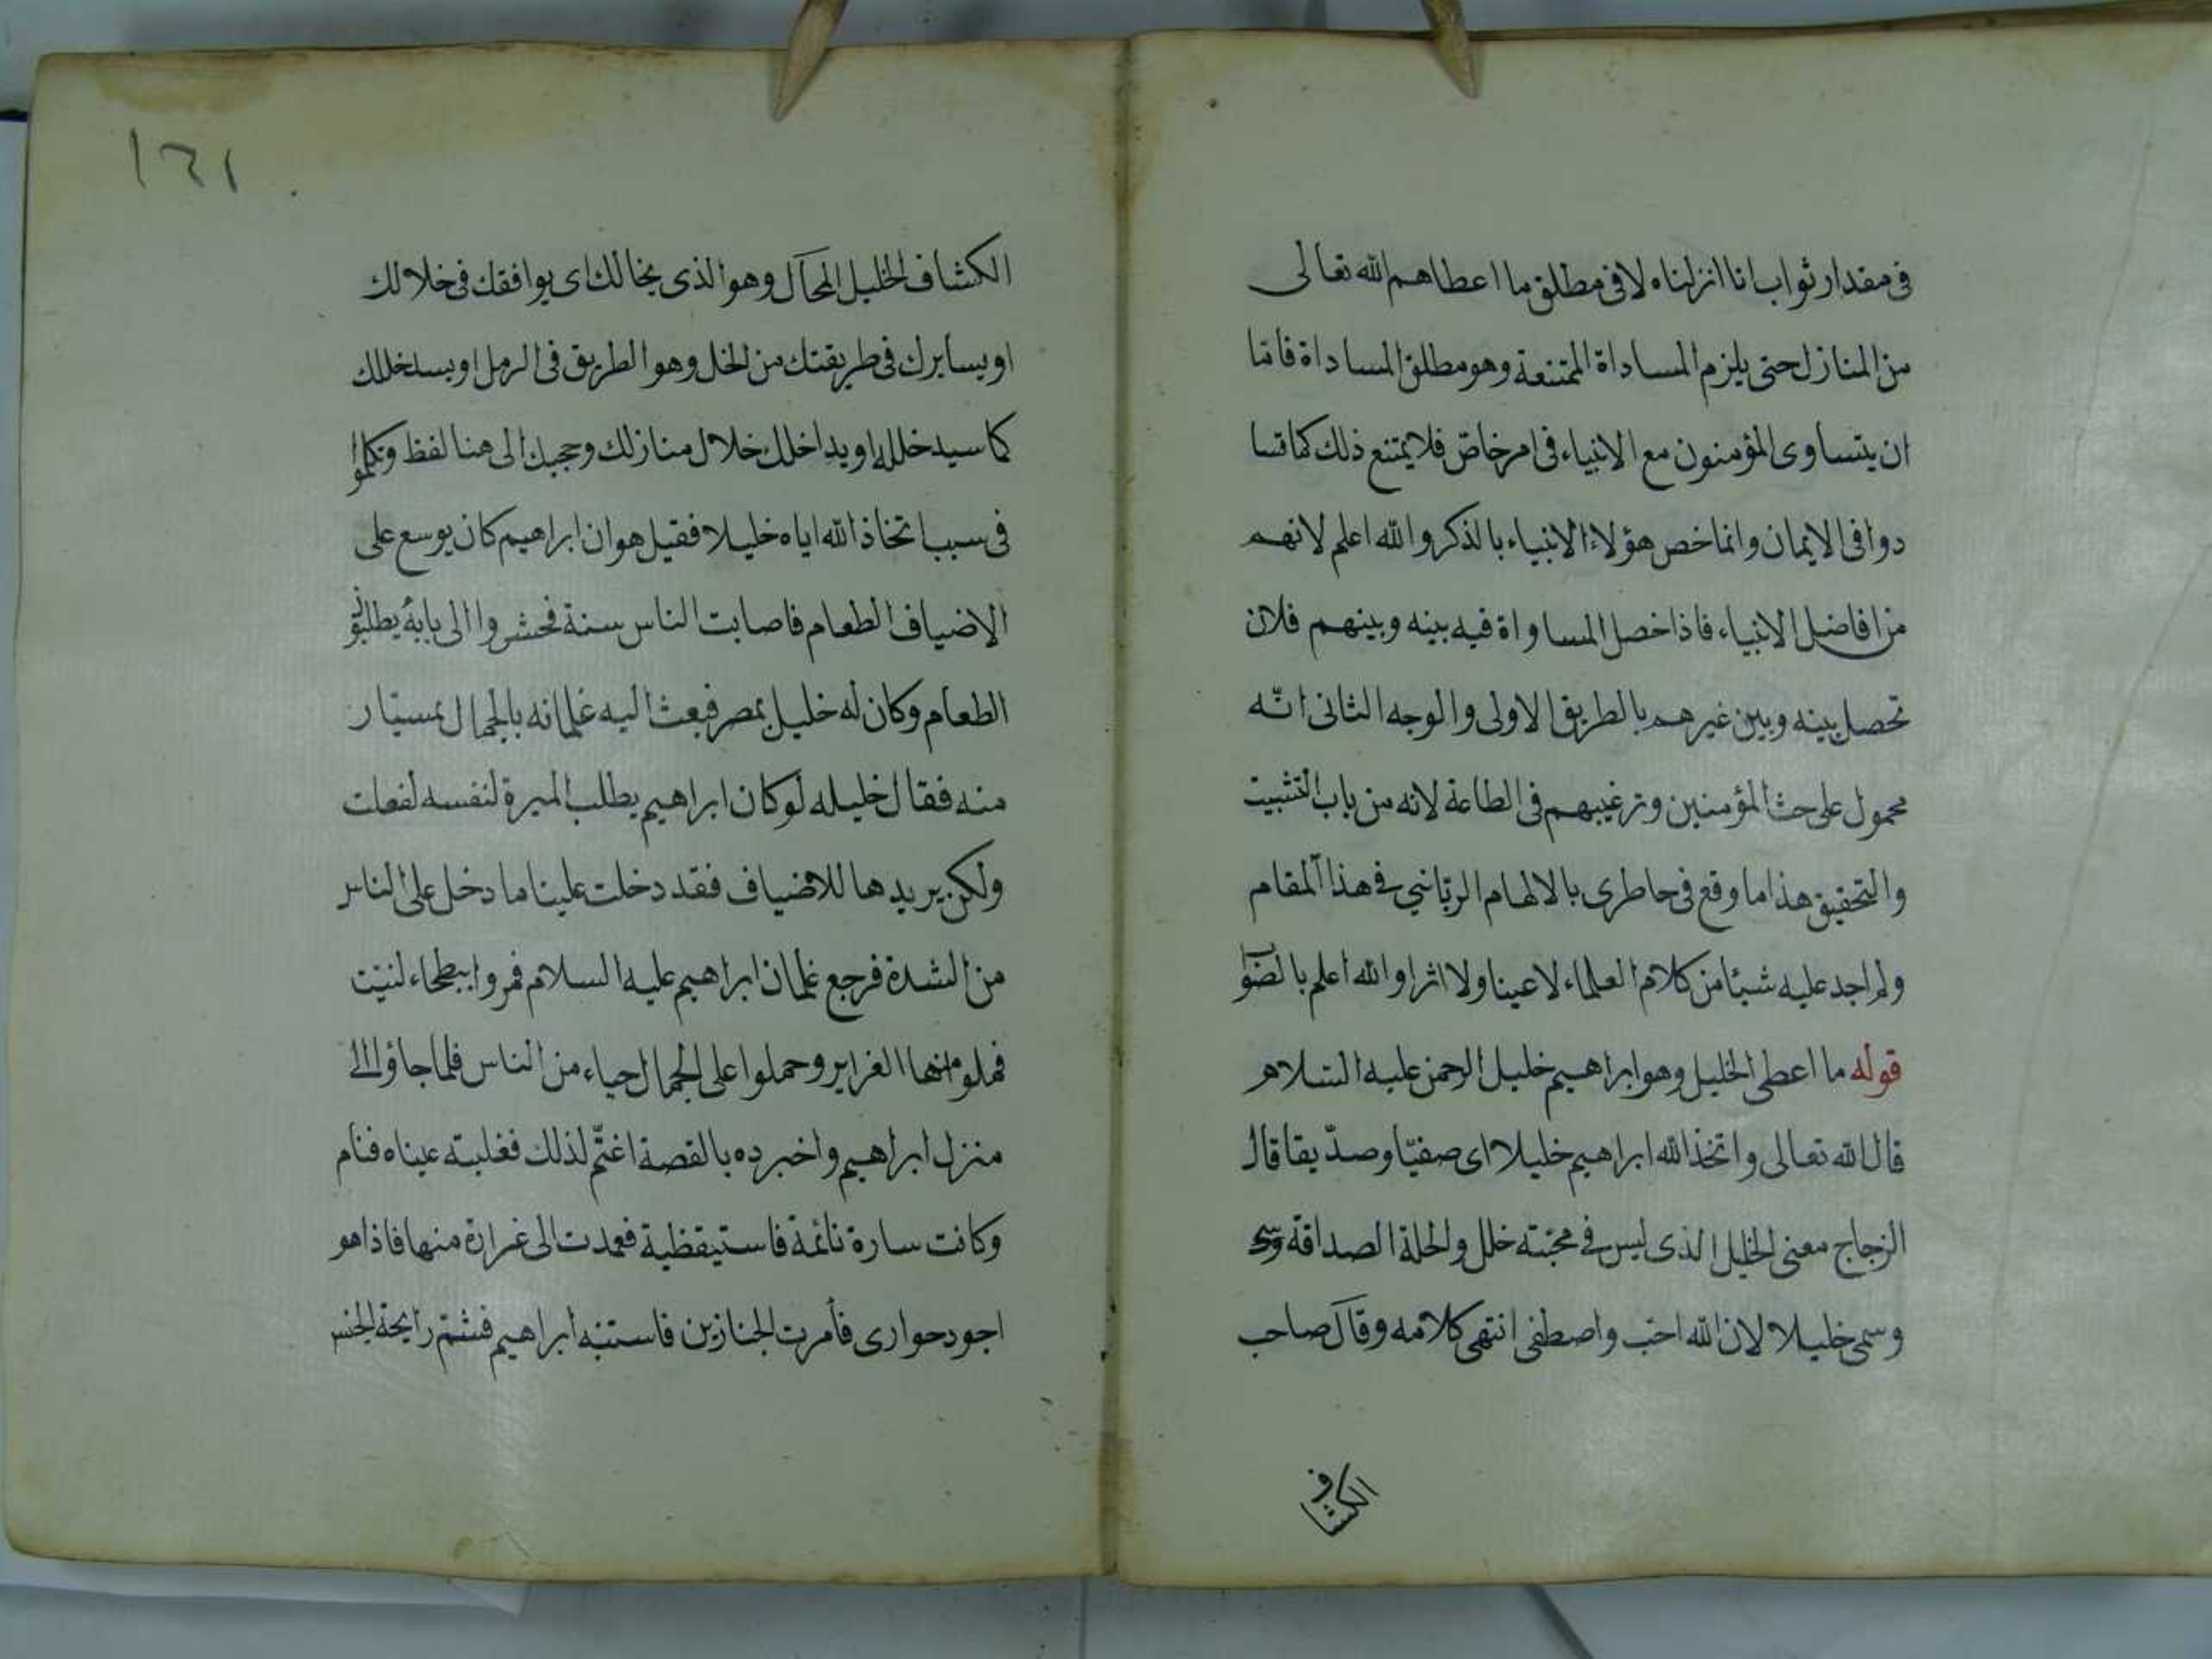 فى مقدار ثواب انا انزلناه لا فى مطلق ما اعطاهم الله تعالى
من المنازل حتى يلزم المساداة الممتنعة وهو مطلق المساداة فاما
ان يتساوى المؤمنون مع الانبياء فى امر خاص فلا يمتنع ذلك كما تسا
دوا فى الايمان وانما خص هؤلاء الانبياء بالذكر والله اعلم لانهم
من افاضل الانبياء فاذا خصل المساواة فيه بينه وبينهم فلان
تحصل بينه وبين غيرهم بالطريق الاولى والوجه الثانى انّه
محمول على حث المؤمنين وترغيبهم فى الطاعة لانه من باب التثبيت
والتحقيق هذا ما وقع فى خاطرى بالالهام الربّاني فى هذا المقام
ولم اجد عليه شيئا من كلام العلماء لا عينا ولا اثرا والله اعلم بالصواب
قوله ما اعطى الخليل وهو ابراهيم خليل الرحمن عليه السلام
قال الله تعالى واتخذ الله ابراهيم خليلا اى صفيّا وصدّيقا قال
الزجاج معنى الخليل الذى ليس فى محبّته خلل والخلة الصداقة وسمى
وسمى خليلا لان الله احب واصطفى انتهى كلامه وقال صاحب
الكشاف
١٦١
الكشاف الخليل المخال وهو الذى يخالك اى يوافقك فى خلالك
او يسايرك فى طريقتك من الخل وهو الطريق فى الرمل او يسد خللك
كما سيد خلله او يداخلك خلال منازلك وحجبك الى هنا لفظ وتكلموا
فى سبب اتخاذ الله اياه خليلا فقيل هو ان ابراهيم كان يوسع على
الاضياف الطعام فاصابت الناس سنة فحشروا الى بابه يطلبون
الطعام وكان له خليل بمصر فبعث اليه غلمانه بالجمال يمسيار
منه فقال خليله لو كان ابراهيم يطلب الميرة لنفسه لفعلت
ولكن يريدها للاضياف فقد دخلت علينا ما دخل على الناس
من الشدة فرجع غلمان ابراهيم عليه السلام فمروا ببطحاء لنيت
فملو منها الغراير وحملوا على الجمال حياء من الناس فلما جاؤا الى
منزل ابراهيم واخبرده بالقصة اغتمّ لذلك فغلبته عيناه فنام
وكانت سارة نائمة فاستيقظية فعمدت الى غرارة منها فاذا هو
اجود حوارى فأمرت الجنازين فاستنبه ابراهيم فشمّ رايحة الخبز